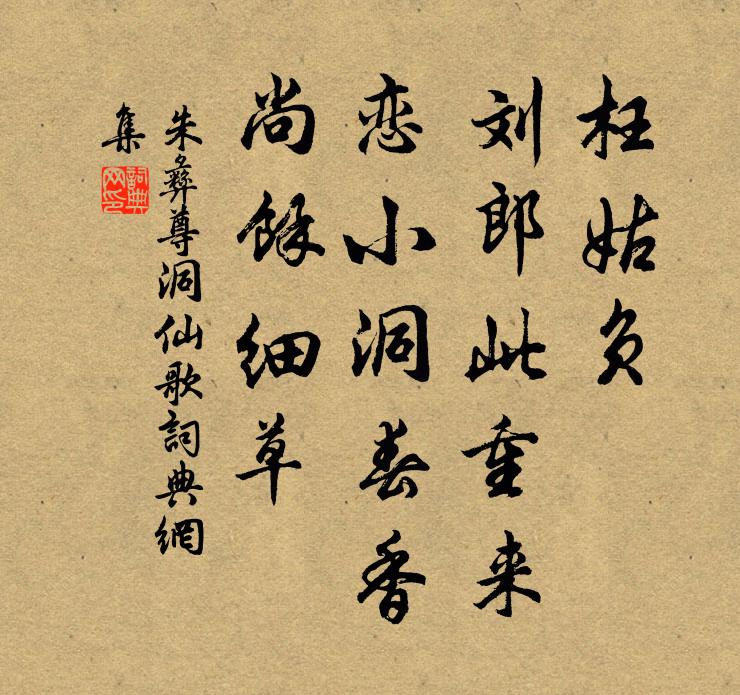 枉姑负
刘郎此重来
恋小洞春香
尚餘细草
朱彝尊洞仙歌詞典網
集
詞典网印